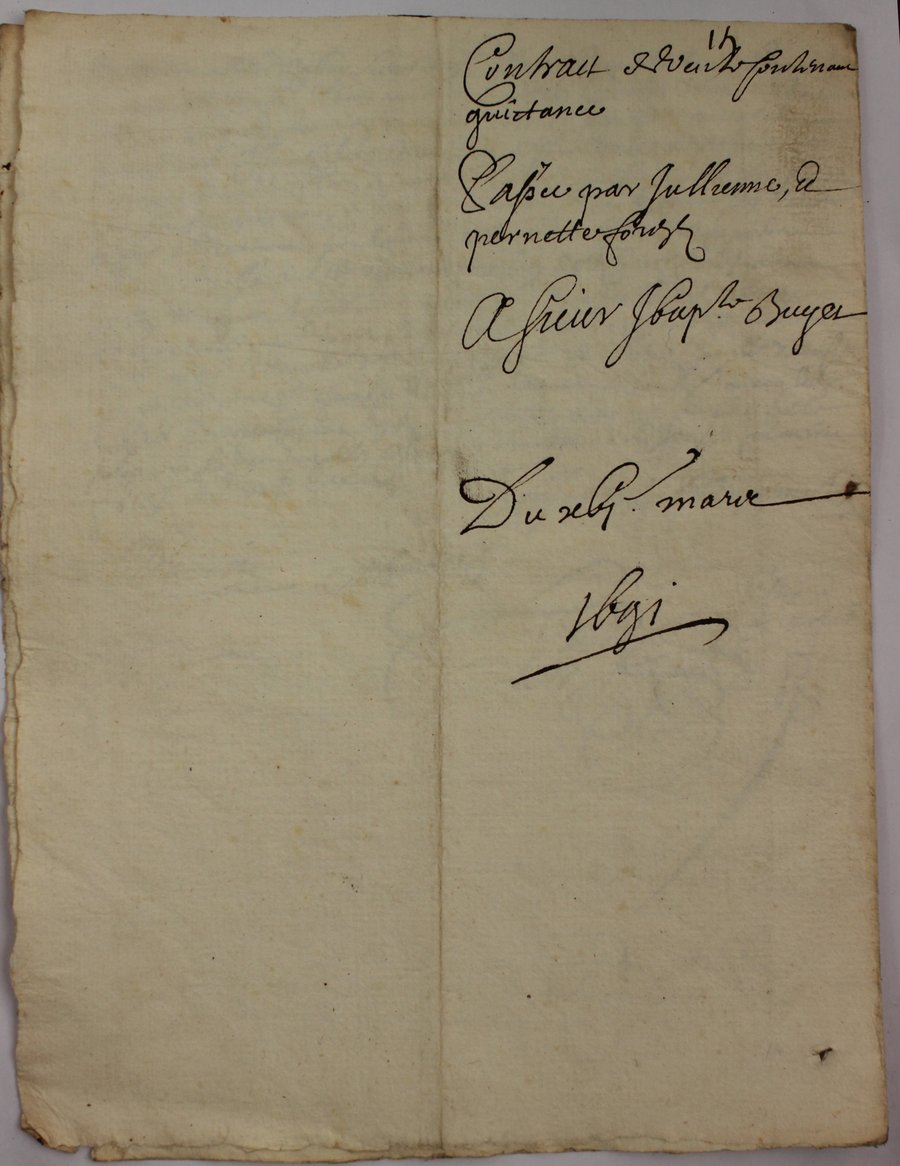 Contract de vente Contenant
quictance
Passée par Jullienne, et
pernette
A Sieur Jbapte Buyet
Du xbj. mars
1691